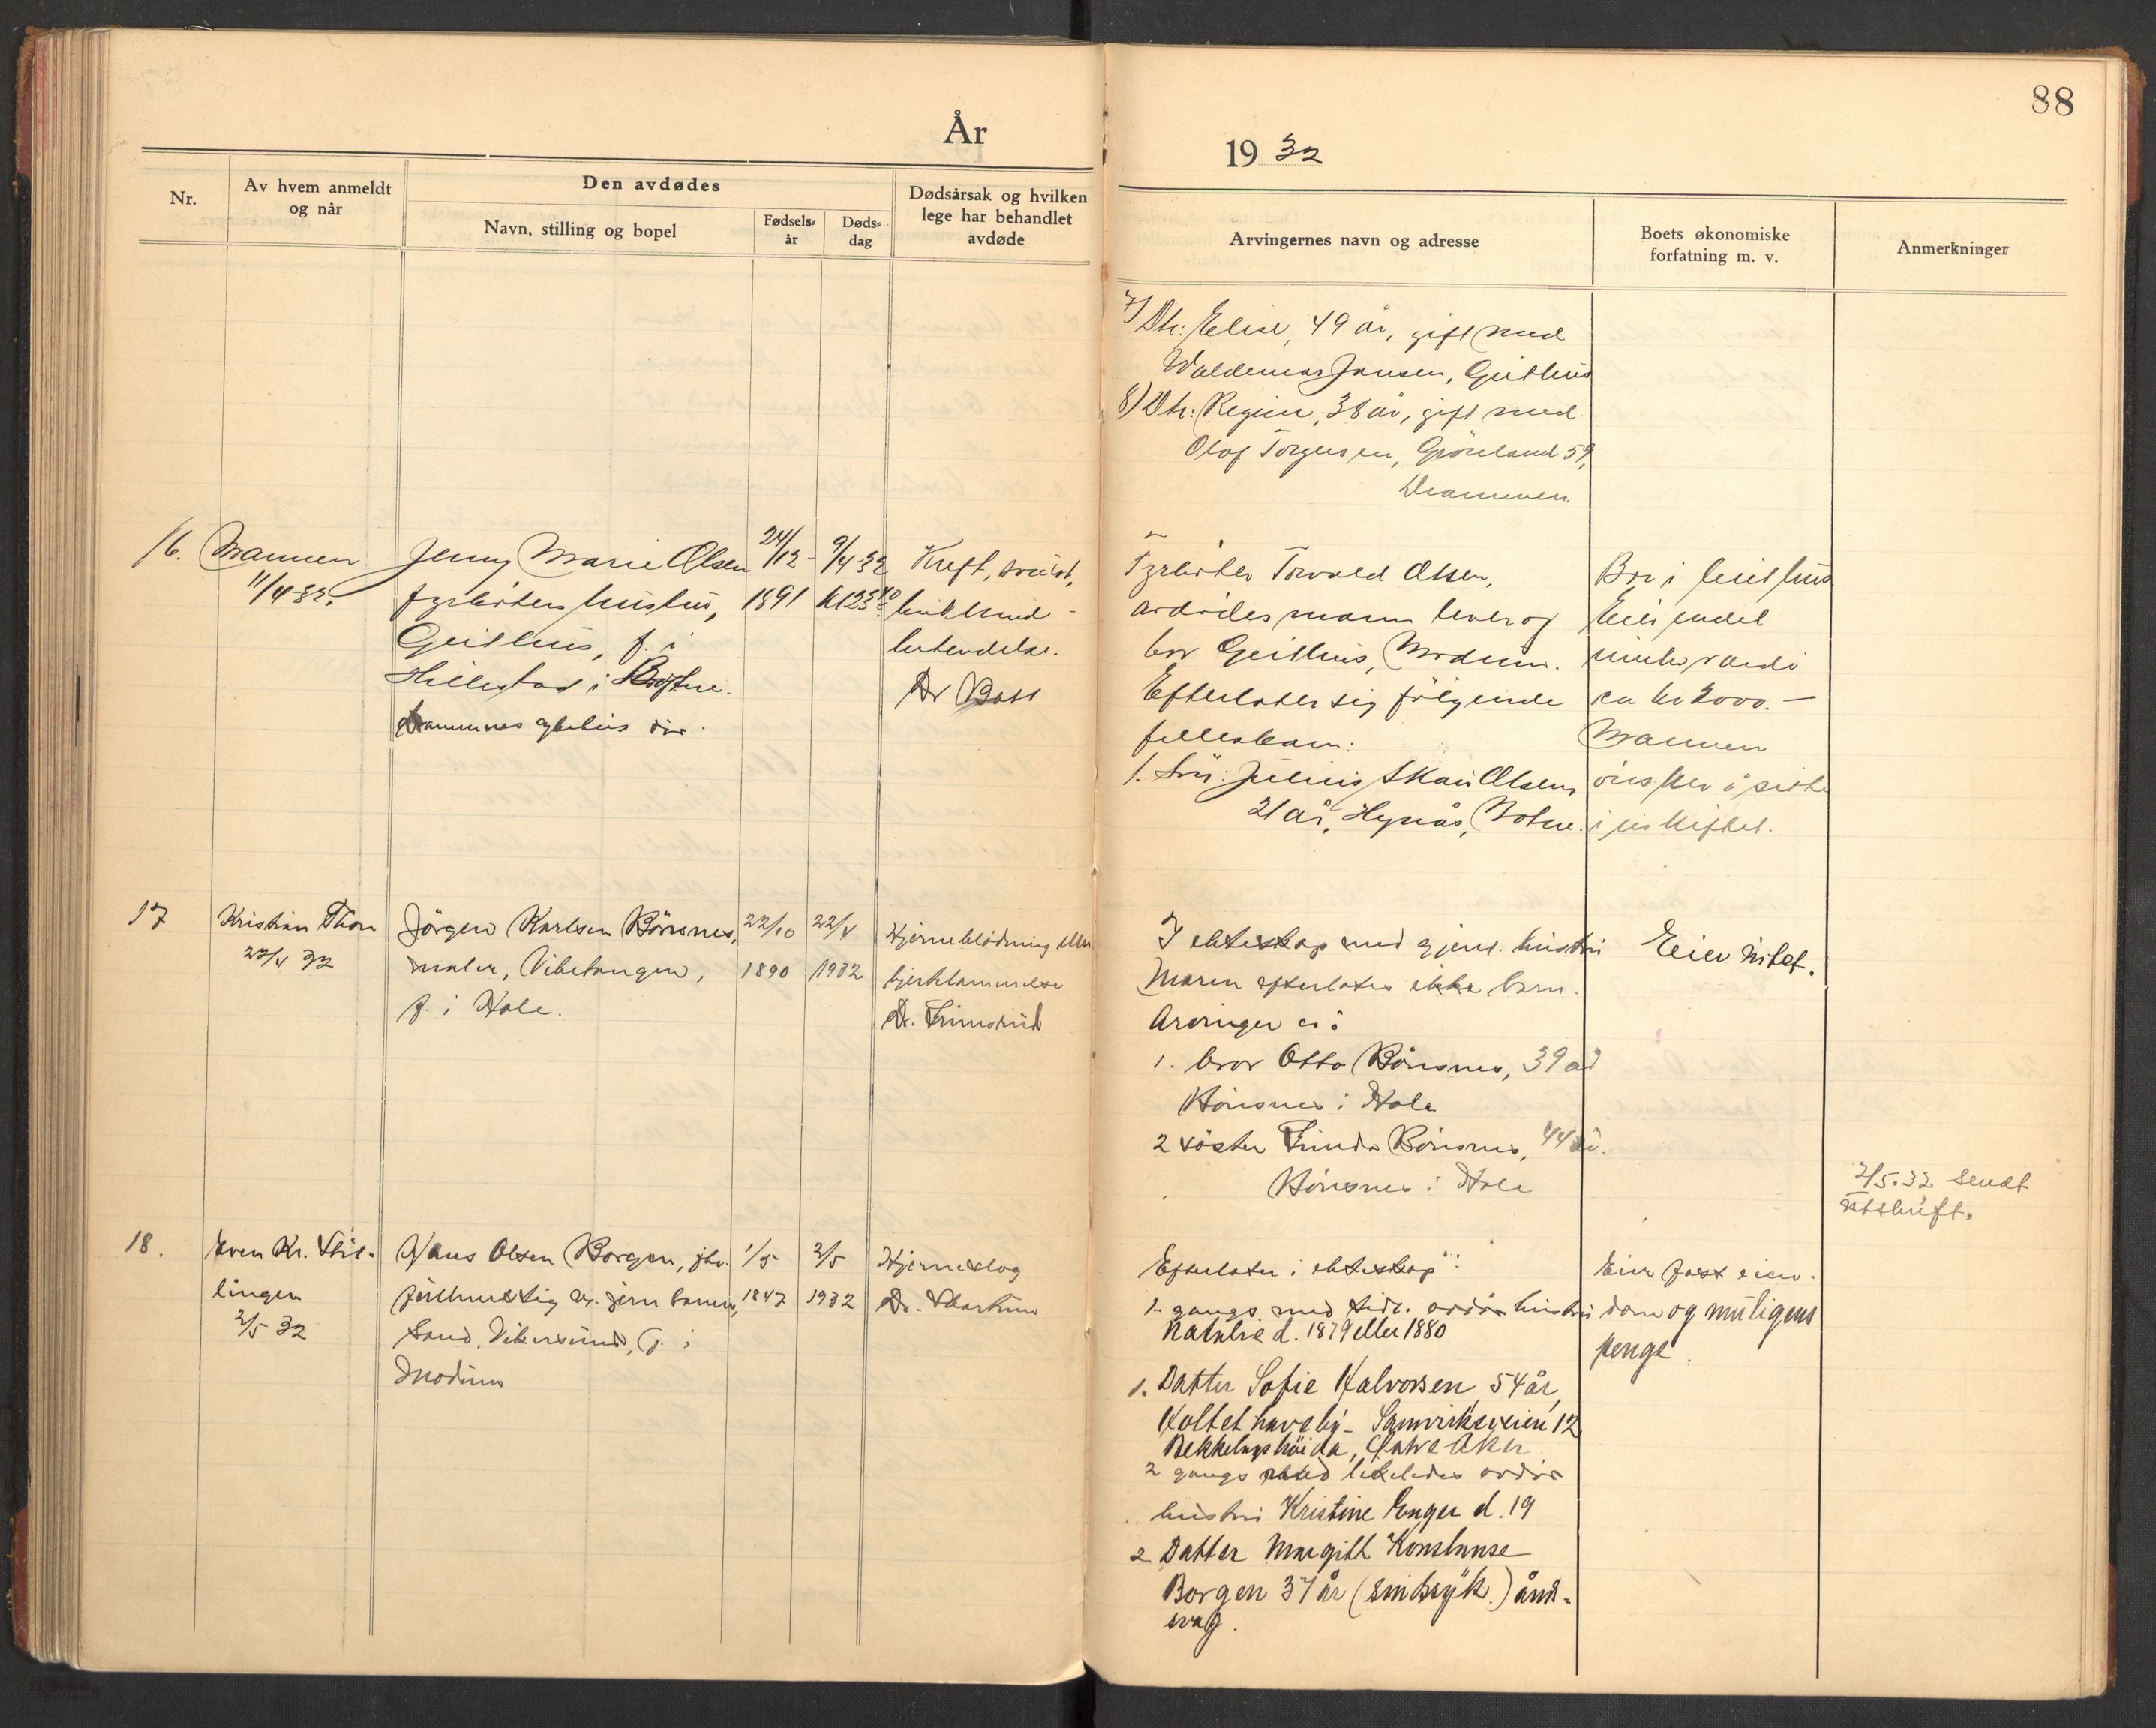 88
År
19 32
Nr.
Av hvem anmeldt
og når
Den avdødes
Navn, stilling og bopel
Fødsels-
år
Døds-
dag
Dødsårsak og hvilken
lege har behandlet
avdøde
Arvingernes navn og adresse
Boets økonomiske
forfatning m. v.
Anmerkninger
7) Dtr: Elise, 49 år, gift med
Waldemar Jansen, Geithus
8) Dtr: Regine, 38 år, gift med
Olaf Torgersen, Grönland 59,
Drammen.
16.
Mannen
11/4-32.
Jenny Marie Olsen
fyrböters hustru,
Geithus, f. i
Hillestad i Botne.
Drammens sykehus död.
24/12-
1891
9/4-32
kl 23
Kreft, svulst,
betendelse.
Dr Bast
Fyrböter Torvald Olsen,
avdödes mann lever og
bor Geithus, Modum.
Efterlater sig fölgende
fellesbarn:
1. Sön: Julius Olsen
21 år, Botne.
Bor i leiet hus
Eier endel
innbo verdi
ca kr 2000.-
Mannen
önsker å sitte
i uskiftet.
17
Kristian Thon
22/4 32
Jörgen Karlsen Börsnes,
maler, Viketangen,
f. i Hole.
22/10
1890
22/4
1932
Hjerneblödning eller
hjertelammelse
Dr. Frimsrud
I ekteskap med gjenl. hustru
Maren efterlates ikke barn.
Arvinger er:
1. bror Otto Bönsnes, 39 år
Bönsnes i Hole
2 söster Bönsnes, 44 år.
Bönsnes i Hole
Eier intet.
18.
Even Kr. Skil-
lingen
2/5 32
Hans Olsen Borgen, fhv.
ved jernbanen,
Sand, Vikersund, f. i
Modum
1/5
1847
2/5
1932
Hjerneslag
Dr.
2/5.32 sendt
utskrift.
Efterlater i ekteskap:
1. gangs med tidl. avdöd hustru
Natalie d. 1879 eller 1880
1. Datter Sofie Halvorsen, 54 år,
Holtet haveby - Samvirkeveien 12
Bekkelagshöida, Östre Aker
2 gangs med likeledes avdöd
hustru Kristine Enger d. 19
2 Datter Margith Konstanse
Borgen 37 år (sindsyk.) ånd-
svag.
Eier fast eien-
dom og muligens
penge.